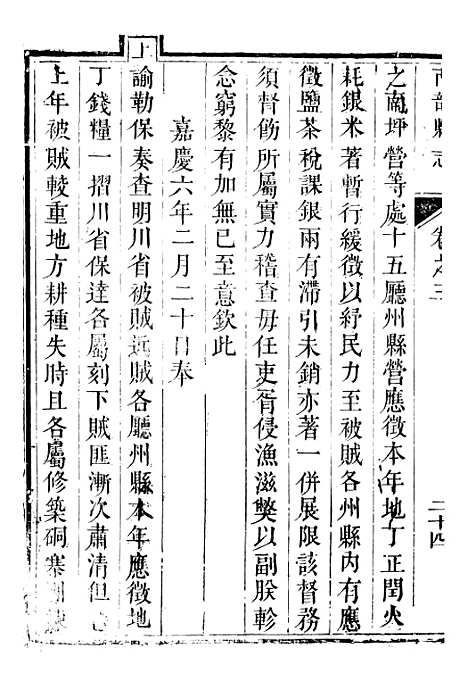 南部縣志 卷之三 二十四
之高坪營等處十五廳州縣營應徵本年地丁正閏火
耗銀米著暫行緩徵以紓民力至被賊各州縣內有應
徵鹽茶稅課銀兩有滯引未銷亦著一併展限該督務
須督飭所屬實力稽查毋任吏胥侵漁滋獘以副朕軫
念窮黎有加無已至意欽此
嘉慶六年二月二十日奉
上
諭勒保奏查明川省被賊近賊各廳州縣本年應徵地
丁錢糧一摺川省保達各屬刻下賊匪漸次肅清但
上年被賊較重地方耕種失時且各屬修築硐寨